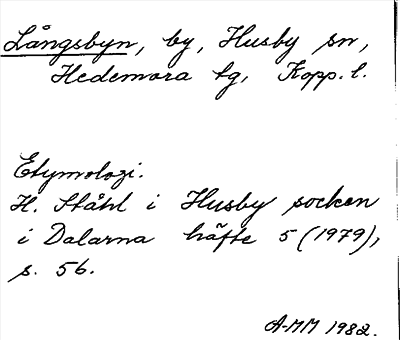 Långsbyn, by, Husby sn,
Hedemora tg, Kopp. l.
Etymologi.
H. Ståhl i Husby socken
i Dalarna häfte 5 (1979),
s. 56.
A-MM 1982.